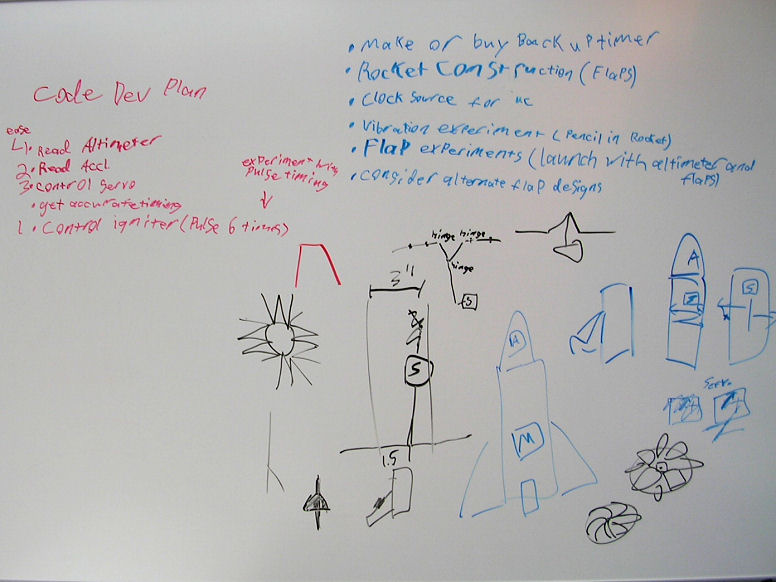 Code Dev Plan
ease
1. Read Altimeter
2. Read Accl.
3. control servo
• get accurate timing
1. Control igniter (Pulse 6 times)
experiment with
pulse timing
• Make or buy Back up timer
• Rocket Construction (Flaps)
• Clock source for uc
• Vibration experiment (Pencil in Rocket)
• Flap experiments (launch with altimeter and
flaps)
• consider alternate flap designs
hinge hinge
hinge
S
3"
S
1.5
A
M
A
S
S
Servo